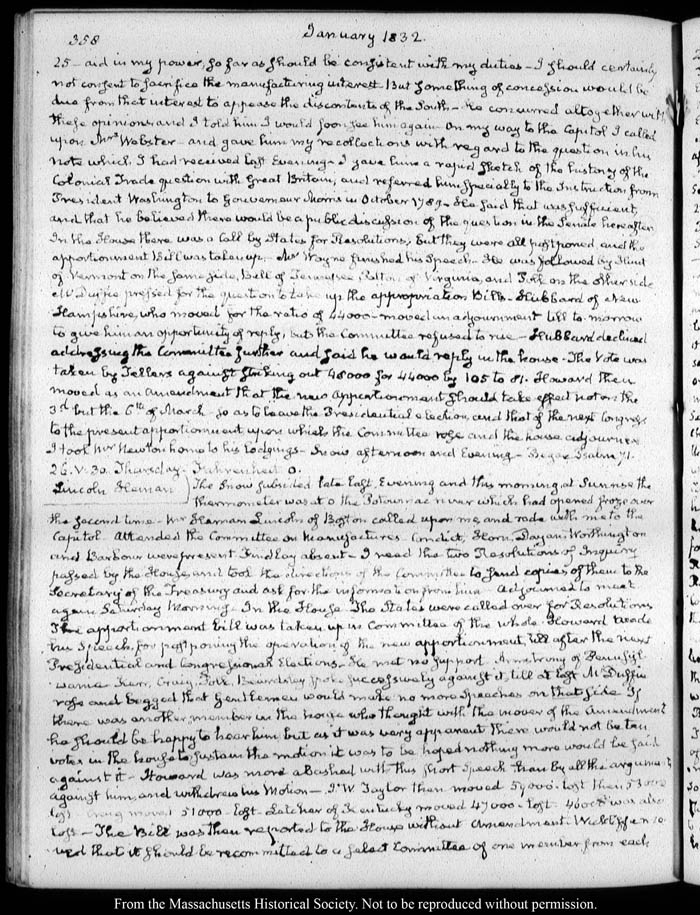 358
January 1832.
25 - aid in my power, so far as should be consistent with my duties - I should certainly
not consent to sacrifice the manufacturing interest. But something of concession would be
due from that interest to appease the discontents of the South - He concurred altogether with
these opinions and I told him I would soon see him again. On my way to the Capitol I called
upon Mr Webster - and gave him my recollections with regard to the question in his
note which I had received last Evening - I gave him a rapid sketch of the history of the
Colonial Trade question with Great Britain, and referred him specially to the Instruction from
President Washington to Gouverneur Morris in October 1789 - He said that was sufficient,
and that he believed there would be a public discussion of the question in the Senate hereafter
In the House there was a Call by States for Resolutions, but they were all postponed, and the
apportionment Bill was taken up. Mr Wayne finished his Speech - He was followed by Hunt
of Vermont on the same side, Bell of Tennessee of Virginia, and Polk on the other side
McDuffie pressed for the question to take up the appropriation Bills - Hubbard of New
Hampshire, who moved for the ratio of 44000 - moved an adjournment till to-morrow
to give him an opportunity of reply, but the Committee refused to rise - Hubbard declined
addressing the Committee further and said he would reply in the house - The Vote was
taken by Tellers against striking out 48000 for 44000 by 105 to 81. Howard then
moved as an Amendment that the new apportionment should take effect not on the
3d but the 6th of March - so as to leave the Presidential election, and that of the next Congress
to the present apportionment upon which the Committee rose and the house adjourned
I took Mr Newton home to his lodgings - Snow afternoon and Evening - Psalm 71.
26. V. 30. Thursday - Fahrenheit 0.
Lincoln Heman
The Snow subsided late last Evening and this morning at Sunrise the
thermometer was at 0 the Potowmac river which had opened froze over
the second time - Mr Heman Lincoln of Boston called upon me, and rode with me to the
Capitol. Attended the Committee on Manufactures. Condict, Horn, Dayan, Worthington
and Barbour were present Findlay absent - I read the two Resolutions of Inquiry
passed by the House, and took the directions of the Committee to send copies of them to the
Secretary of the Treasury and ask for the information from him - Adjourned to meet
again Saturday Morning. In the House - The States were called over for Resolutions
The apportionment bill was taken up in Committee of the whole. Howard made
his Speech, for postponing the operation of the new apportionment, till after the next
Presidential and Congressional Elections - He met no support. Armstrong of Pennsyl-
vania Kerr, Craig, Polk, Beardsley spoke successively against it, till at last McDuffie
rose and begged that Gentlemen would make no more Speeches on that side. If
there was another member in the house who thought with the mover of the Amendment
he should be happy to hear him but as it was very apparent there would not be ten
votes in the house to sustain the motion it was to be hoped nothing more would be said
against it - Howard was more abashed with this short Speech than by all the arguments
against him, and withdrew his Motion - J. W Taylor then moved 59000 - lost then 53000
lost - Craig moved 51000 - lost - Letcher of Kentucky moved 47000 - lost - was also
lost - The Bill was then reported to the House without Amendment.
that it should be recommitted to a select Committee of one member from each
From the Massachusetts Historical Society. Not to be reproduced without permission.